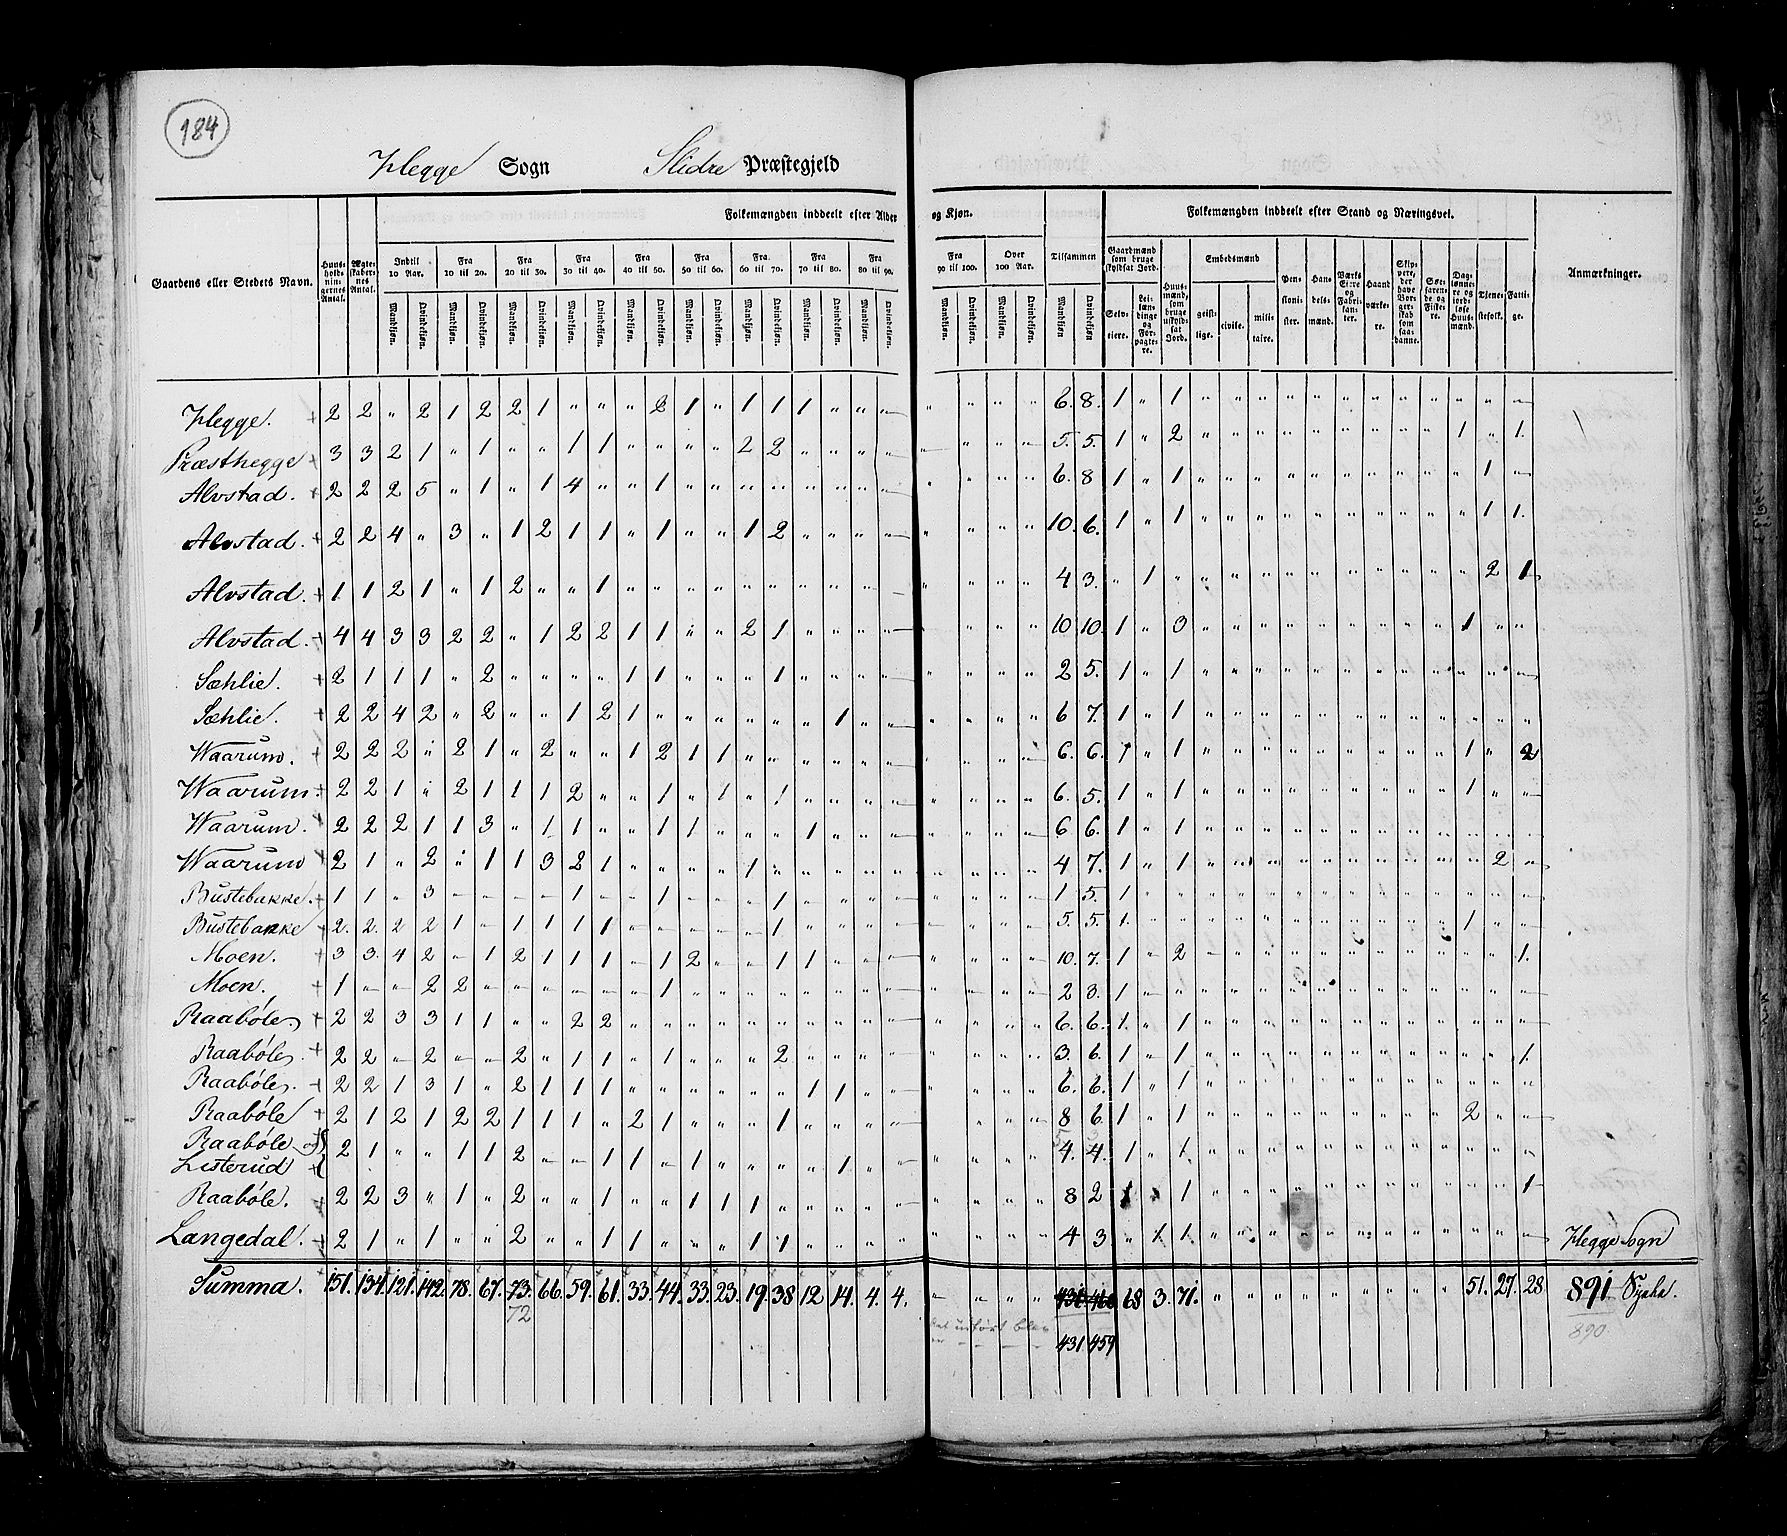 184
Hegge Sogn Slidre Præstegjeld
Folkemængden inddeelt efter Alder og Kjøn. Folkemængden inddeelt efter Stand og Næringsvei.
Gaardens eller Stedets Navn. Huus-holdnin-gernes Antal. Ægte-skaber-nes Antal. Indtil 10 Aar. Fra 10 til 20. Fra 20 til 30. Fra 30 til 40. Fra 40 til 50. Fra 50 til 60. Fra 60 til 70. Fra 70 til 80. Fra 80 til 90. Fra 90 til 100. Over 100 Aar. Tilsammen Gaardmænd som bruge skyldsat Jord. Huus-mænd, som bruge uskyld-sat Jord. Embedsmænd Pen-sioni-ster. Han-dels-mænd. Værks Eiere og Fabri-kan-ter. Haand værke-re. Skip-pere, der have Bor-ger-skab som saa-danne. Søe-faren-de og Fiske-re. Dag-lønne-re og jord-løse Huus-mænd. Tjene-stefolk. Fatti-ge. Anmærkninger.
Mandkjøn. Qvindekjøn. Selv-eiere. Lei-læn-dinge og For-pagte-re. geist-lige. civile. mili-taire.
Hegge. 2 2 „ 2 1 2 2 1 „ „ „ 2 1 „ 1 1 1 „ „ „ „ „ „ „ 6. 8. 1 „ 1 „ „ „ „ „ „ „ „ „ „ „ „
Præsthegge 3 3 2 1 „ 1 „ „ 1 1 „ „ „ „ 2 2 „ „ „ „ „ „ „ 5. 5. 1 „ 2 „ „ „ „ „ „ „ „ „ 1 „ 1.
Alvstad. 2 2 2 5 „ 1 „ 1 4 „ „ 1 „ „ „ „ „ „ „ „ „ „ „ „ 6. 8 1 „ 1 „ „ „ „ „ „ „ „ „ „ 1 „
Alvstad. 2 2 4 „ 3 „ 1 2 1 1 „ 1 „ „ 1 2 „ „ „ „ „ „ „ „ 10. 6. 1 „ 1 „ „ „ „ „ „ „ „ „ „ 1 1.
Alvstad. 1 1 2 1 „ 1 2 „ „ 1 „ „ „ „ „ „ „ „ „ „ „ „ „ „ 4 3. „ 1 „ „ „ „ „ „ „ „ „ „ „ 2 1
Alvstad. 4 4 3 3 2 2 „ 1 2 2 1 1 „ „ 2 1 „ „ „ „ „ „ „ „ 10 10. 1 „ 3 „ „ „ „ „ „ „ „ „ 1 „ „
Sæhlie. 2 1 1 1 „ 2 „ „ „ „ 1 1 „ „ „ 1 „ „ „ „ „ „ „ „ 2 5. 1 „ 1 „ „ „ „ „ „ „ „ „ „ „ „
Sæhlie. 2 2 4 2 „ 2 „ „ 1 2 1 „ „ „ „ „ „ 1 „ „ „ „ „ „ 6 7. 1 „ 1 „ „ „ „ „ „ „ „ „ „ „ „
Waarum. 2 2 2 „ 2 1 „ 2 „ „ 1 2 1 1 „ „ „ „ „ „ „ „ „ „ 6. 6. 1 „ 1 „ „ „ „ „ „ „ „ „ 1 „ 2
Waarum. 2 2 1 „ 2 1 1 1 2 „ „ 1 „ 1 „ 1 „ „ „ „ „ „ „ „ 6. 5. 1 „ 1 „ „ „ „ „ „ „ „ „ 1 „ „
Waarum. 2 2 2 1 1 3 „ 1 1 „ „ 1 1 „ „ „ 1 „ „ „ „ „ „ „ 6 6. 1 „ 1 „ „ „ „ „ „ „ „ „ „ „ „
Waarum 2 1 „ 2 „ 1 1 3 2 1 „ „ „ „ 1 „ „ „ „ „ „ „ „ „ 4 7. 1 „ 1 „ „ „ „ „ „ „ „ „ „ 2 „
Bustebakke. 1 1 „ 3 „ „ „ „ 1 „ „ 1 „ „ „ 1 „ „ „ „ „ „ „ „ 1 5. 1 „ „ „ „ „ „ „ „ „ „ „ „ „ „
Bustebakke 2. 2. 2 2 1 „ 1 1 1 1 „ „ „ „ „ 1 „ „ „ „ „ „ „ „ 5. 5. 1. „ „ „ „ „ „ „ „ „ „ „ 1 „ „
Moen. 3 3. 4 2 „ 1 2 1 1 1 „ 1 2 „ „ 1 1 „ „ „ „ „ „ „ 10. 7. 1 „ 2 „ „ „ „ „ „ „ „ „ „ „ 1.
Moen. 1 „ „ 2 2 „ „ „ „ „ „ 1 „ „ „ „ „ „ „ „ „ „ „ „ 2 3. 1 „ „ „ „ „ „ „ „ „ „ „ „ „ „
Raabøle. 2 2 3 3 1 1 „ „ 2 2 „ „ „ „ „ „ „ „ „ „ „ „ „ „ 6. 6. 1. „ 1 „ „ „ „ „ „ „ „ „ „ „ „
Raabøle. 2 2 „ 2 „ „ 2 „ 1 1 „ 1 „ „ „ 2 „ „ „ „ „ „ „ „ 3. 6. 1 „ 1 „ „ „ „ „ „ „ „ „ „ „ 1.
Raabøle. 2 2 1 3 1 „ 2 1 1 1 „ „ „ „ „ „ 1 1 „ „ „ „ „ „ 6. 6. 1 „ 1 „ „ „ „ „ „ „ „ „ „ „ „
Raabøle 2 1 2 1 2 2 1 1 1 „ 2 1 „ „ „ 1 „ „ „ „ „ „ 8 6. 1 „ 1 „ „ „ „ „ „ „ „ „ 2 „ „
Raabøle og
Listerud 2 1 „ „ 1 1 2 „ „ 1 1 „ 1 „ „ „ „ 1 „ „ „ „ „ „ 4. 4. 1 „ 1. „ „ „ „ „ „ „ „ „ „ „ „
Raabøle. 2 2 3 „ 1 „ 2 „ „ 1 „ „ 1 1 1 „ „ „ „ „ „ „ „ „ 8 2 1 „ 1 „ „ „ „ „ „ „ „ „ „ „ 1
Langedal. 2 1 „ 1 „ „ 2 „ „ 1 1 „ „ „ 1 1 „ „ „ „ „ „ „ „ 4 3 „ 1 1 „ „ „ „ „ „ „ „ „ „ „ „ Hegge Sogn
Summa. 151. 134. 121. 142. 78. 67. 73. 66. 59. 61. 33. 44. 33. 23. 19. 38 12 14. 4. 4. „ „ „ „ 431. 460 68 3. 71. „ „ „ „ „ „ „ „ „ 51. 27. 28 891
72 431 459 890.